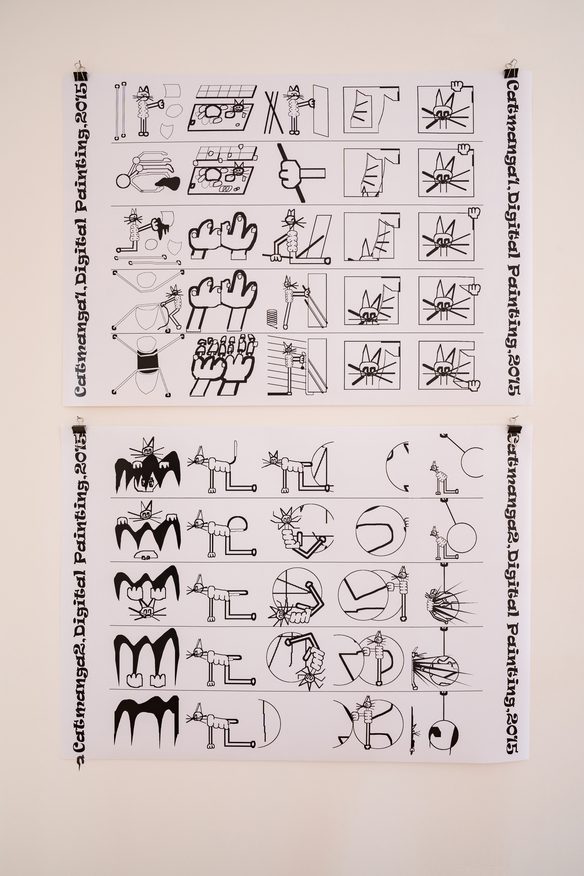 Catmanga1,Digital Painting,2015
Catmanga1,Digital Painting,2015
Catmanga2,Digital Painting,2015
Catmanga2,Digital Painting,2015